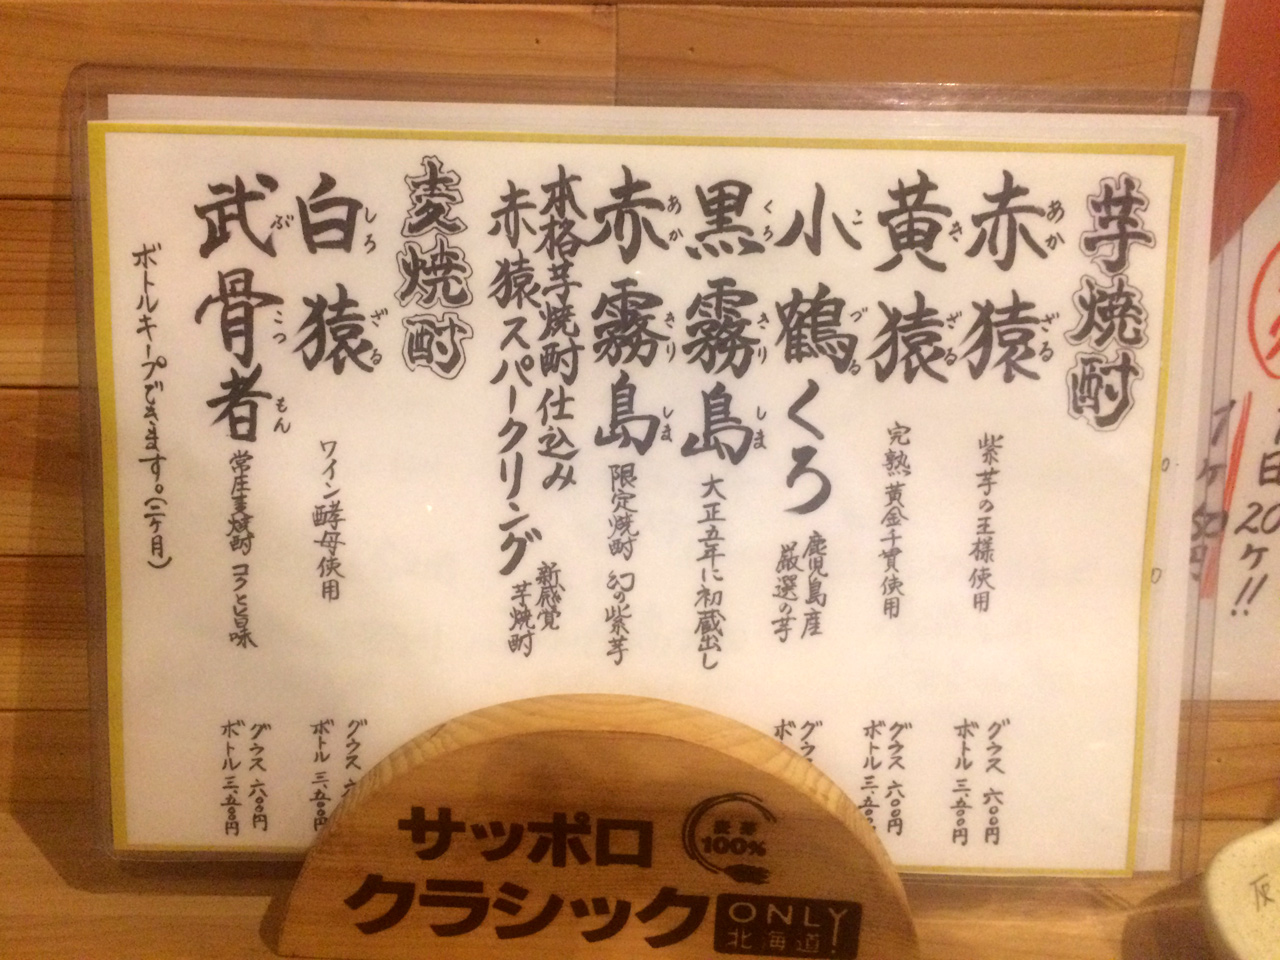 芋焼酎
赤猿
あかざる
紫芋の王様使用
グラス 六〇〇円
ボトル 三、五〇〇円
黄猿
きざる
完熟黄金千貫使用
グラス 六〇〇円
ボトル 三、五〇〇円
小鶴くろ
こづる
鹿児島産
厳選の芋
グラス
ボトル
黒霧島
くろきりしま
大正五年に初蔵出し
赤霧島
あかきりしま
限定焼酎 幻の紫芋
本格芋焼酎仕込み
赤猿スパークリング
新感覚
芋焼酎
麦焼酎
白猿
しろざる
ワイン酵母使用
グラス 六
ボトル 三、五〇〇円
武骨者
ぶこつもん
常圧麦焼酎 コクと旨味
グラス 六〇〇円
ボトル 三、五〇〇円
ボトルキープできます。(二ヶ月)
サッポロ
クラシック
麦芽
100%
ONLY
北海道!
20
ケ!!